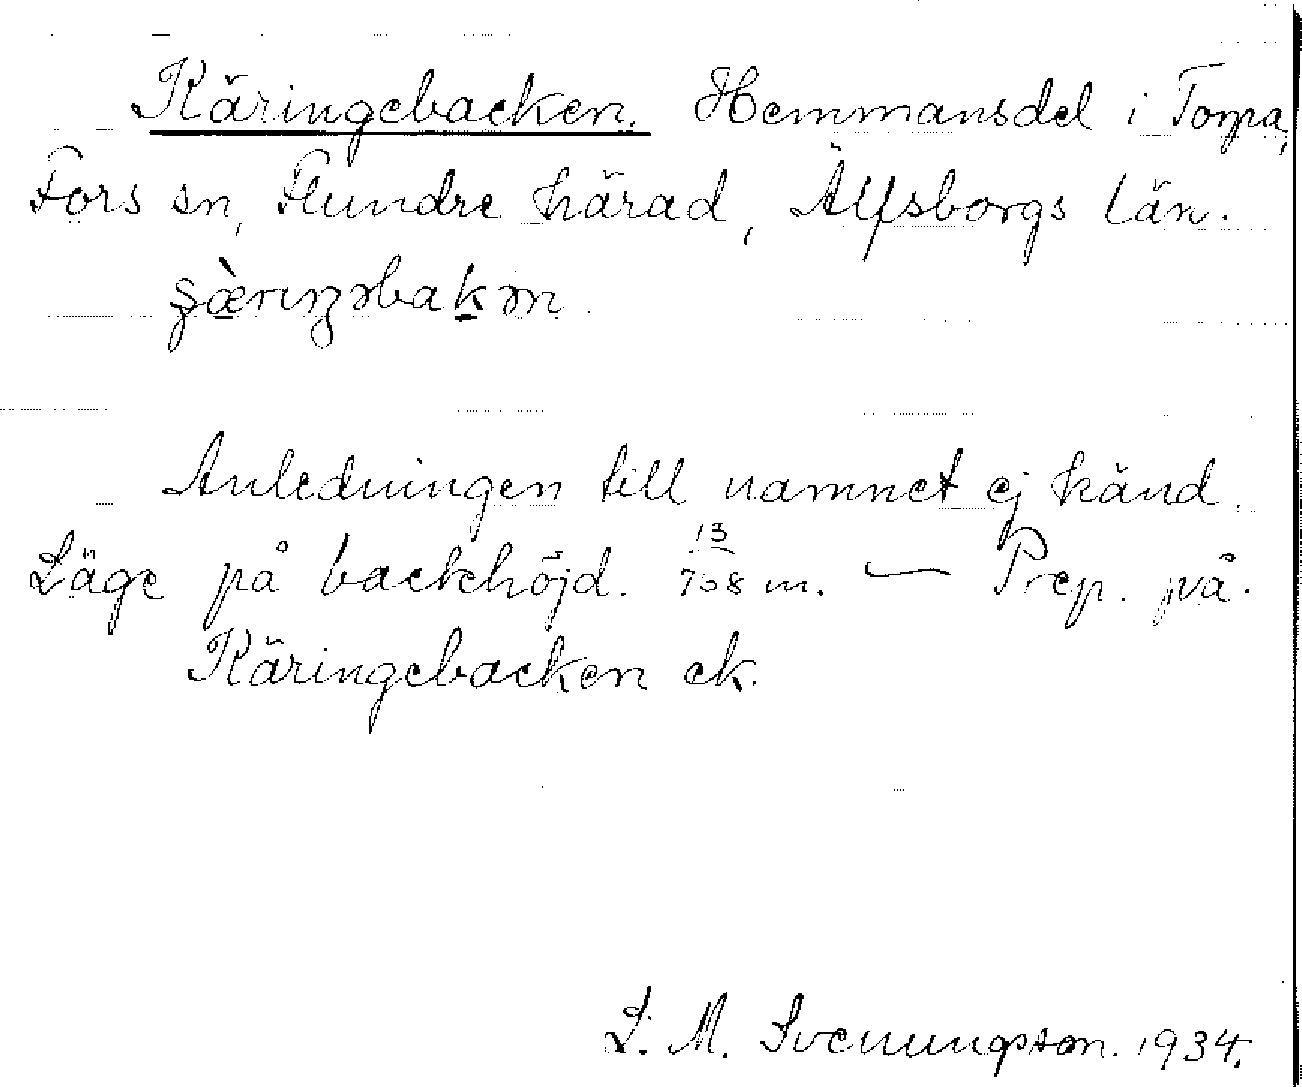 Käringebacken. Hemmansdel i Torpa,
Fors sn, Flundre härad, Älfsborgs län.
Anledningen till namnet ej känd.
Läge på backhöjd. 13/708 m. — Prep. på.
Käringebacken ek.
L. M. Svenungsson. 1934.